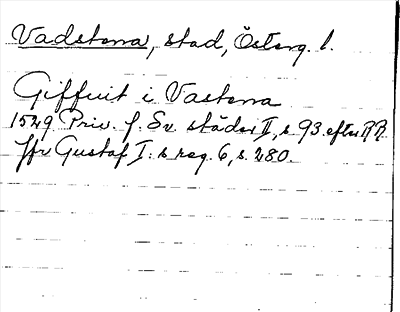 Vadstena, stad, Österg. l.
Giffuit i Vastena
1529 Priv. f. Sv. städer II, s. 93. efter RR.
Jfr Gustaf I:s reg. 6, s. 280.